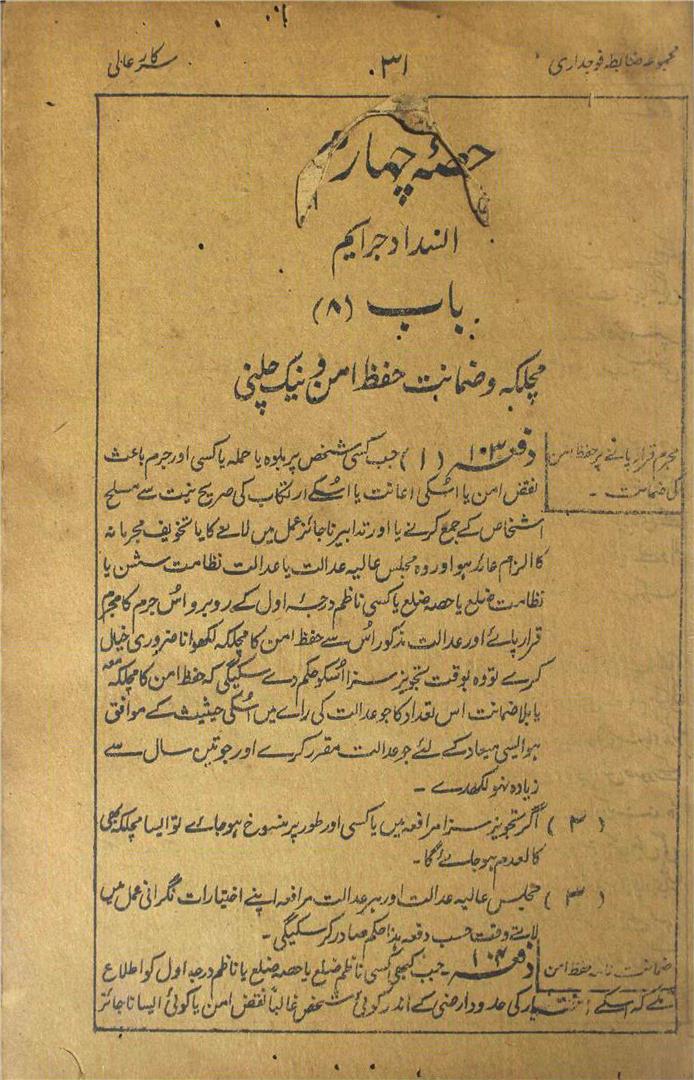 مجموعہ ضابطہ فوجداری
۳۱
سرکار عالی
حصۂ چہارم
انسداد جرایم
باب (۸)
مچلکہ و ضمانت حفظ امن و نیک چلنی
مجرم قرار پانے پر حفظ امن
کی ضمانت ۔
دفعہ ۱۰۳ (۱) جب کسی شخص پر بلوہ یا حملہ یا کسی اور جرم باعث
نقض امن یا اسکی اعانت یا اسکے ارتکاب کی صریح نیت سے مسلح
اشخاص کے جمع کرنے یا اور تدابیر ناجائز عمل میں لانے کا یا تخویف مجرمانہ
کا الزام عائد ہو اور وہ مجلس عالیہ عدالت یا عدالت نظامت سشن یا
نظامت ضلع یا حصہ ضلع یا کسی ناظم درجہ اول کے روبرو اس جرم کا مجرم
قرار پائے اور عدالت مذکور اُس سے حفظ امن کا مچلکہ لکھوانا ضروری خیال
کرے تو وہ بوقت تجویز سزا اُسکو حکم دے سکیگی کہ حفظ امن کا مچلکہ معہ
یا بلا ضمانت اس تعداد کا جو عدالت کی راے میں اُسکی حیثیت کے موافق
ہو ایسی میعاد کے لئے جو عدالت مقرر کرے اور جو تین سال سے
زیادہ نہو لکھدے ۔
(۲) اگر تجویز سزا مرافعہ میں یا کسی اور طور پر منسوخ ہوجاے تو ایسا مچلکہ بھی
کالعدم ہوجائے گا ۔
(۳) مجلس عالیہ عدالت اور ہر عدالت مرافعہ اپنے اختیارات نگرانی عمل میں
لاتے وقت حسب دفعہ ہذا حکم صادر کر سکیگی ۔
ضمانت حفظ امن
دفعہ ۱۰۴ ۔ جب کبھی کسی ناظم ضلع یا حصہ ضلع یا ناظم درجہ اول کو اطلاع
ملے کہ اسکے اختیار کی حدود ارضی کے اندر کوئی شخص غالباً نقض امن یا کوئی ایسا ناجائز